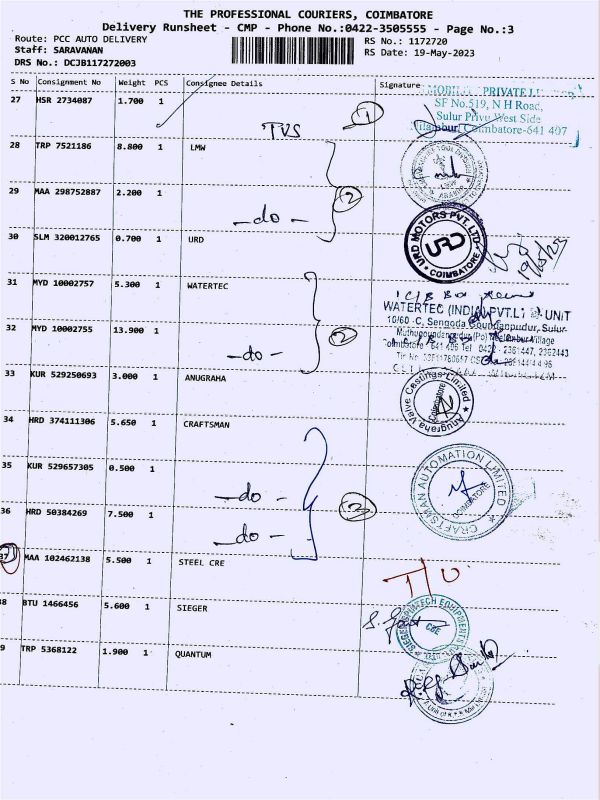 THE PROFESSIONAL COURIERS, COIMBATORE
Delivery Runsheet - CMP - Phone No.:0422-3505555 - Page No.:3
Route: PCC AUTO DELIVERY RS No.: 1172720
Staff: SARAVANAN RS Date: 19-May-2023
DRS No.: DCJB117272003
S No Consignment No Weight PCS Consignee Details Signature
MOBILITY PRIVATE LIMITED
27 HSR 2734087 1.700 1 TVS 1
SF No.519, N H Road,
Sulur Privu West Side
Nilambur, Coimbatore-641 407
28 TRP 7521186 8.800 1 LMW
29 MAA 298752887 2.200 1 -do- 2
30 SLM 320012765 0.700 1 URD
URD MOTORS PVT. LTD
URD
COIMBATORE
19/05/23
31 MYD 10002757 5.300 1 WATERTEC
WATERTEC (INDIA) PVT.LTD UNIT
10/60-C, Sengoda Goundanpudur, Sulur
32 MYD 10002755 13.900 1 -do- 2
Village
2361447, 2362443
33 KUR 529250693 3.000 1 ANUGRAHA
Anugraha Valve Castings Limited
Coimbatore
34 HRD 374111306 5.650 1 CRAFTSMAN
CRAFTSMAN AUTOMATION LIMITED
COIMBATORE
35 KUR 529657305 0.500 1 -do-
36 HRD 50384269 7.500 1 -do- 3
37 MAA 102462138 5.500 1 STEEL CRE
T/O
38 BTU 1466456 5.600 1 SIEGER
SIEGER SPINTECH EQUIPMENTS
CBE
39 TRP 5368122 1.900 1 QUANTUM